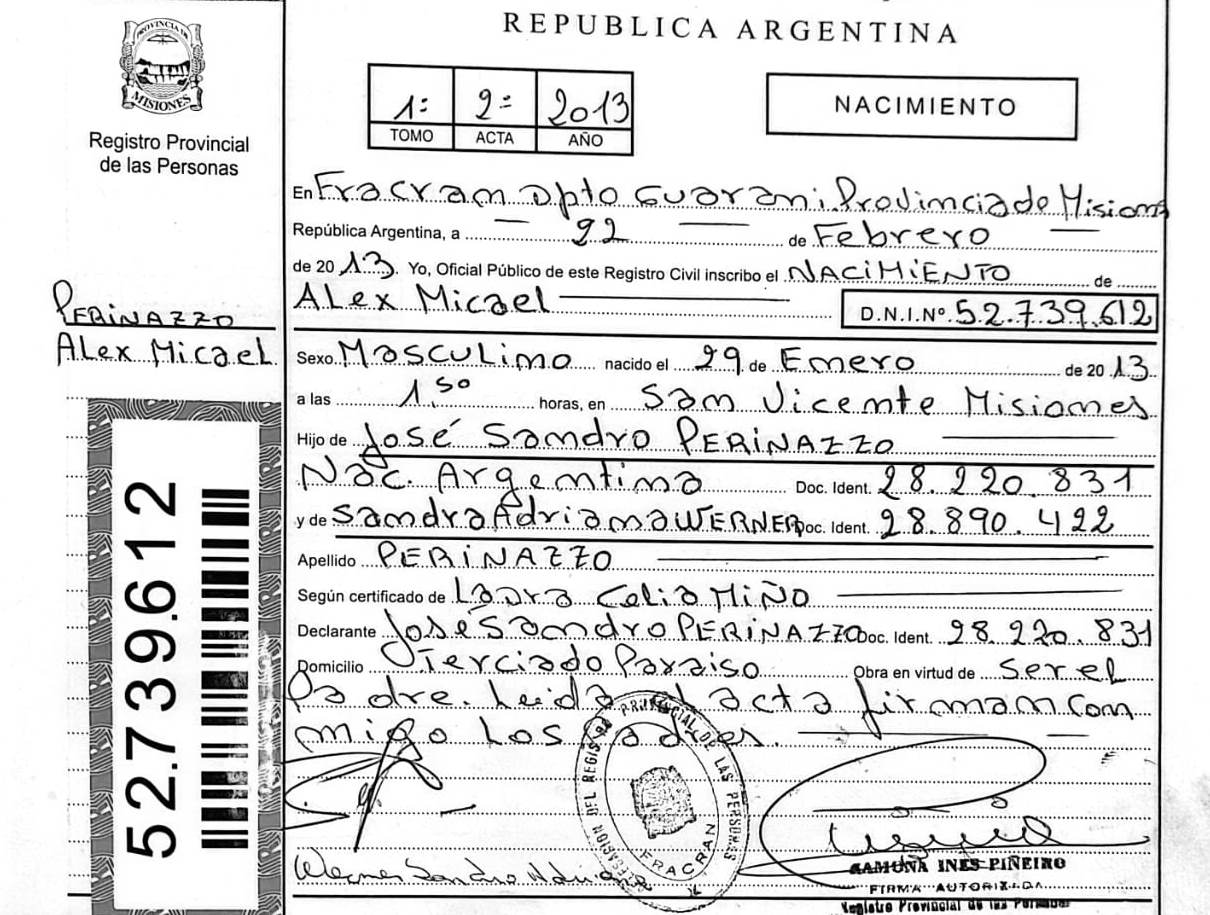 PROVINCIA DE
MISIONES
Registro Provincial
de las Personas
PERINAZZO
ALex Micael
52.739.612
REPUBLICA ARGENTINA
1º 2º 2013
TOMO ACTA AÑO
NACIMIENTO
En Fracran Dpto Guarani Provincia de Misiones
República Argentina, a 22 de Febrero
de 20 13. Yo, Oficial Público de este Registro Civil inscribo el NACIMIENTO de
ALex Micael D.N.I.Nº 52.739.612
Sexo Masculino nacido el 29 de Enero de 20 13
a las 1,50 horas, en San Vicente Misiones
Hijo de José Sandro PERINAZZO
Nac. Argentina Doc. Ident. 28.220.831
y de Sandra Adriana WERNER Doc. Ident. 28.890.422
Apellido PERINAZZO
Según certificado de Laura Celia Miño
Declarante José Sandro PERINAZZO Doc. Ident. 28.220.831
Domicilio Terciado Paraiso Obra en virtud de ser el
Padre. Leida el acta firman con
migo los Padres.
DELEGACION DEL REGISTRO PROVINCIAL DE LAS PERSONAS
FRACRAN
Werner Sandra Adriana
RAMONA INES PIÑEIRO
FIRMA AUTORIZADA
Registro Provincial de las Personas